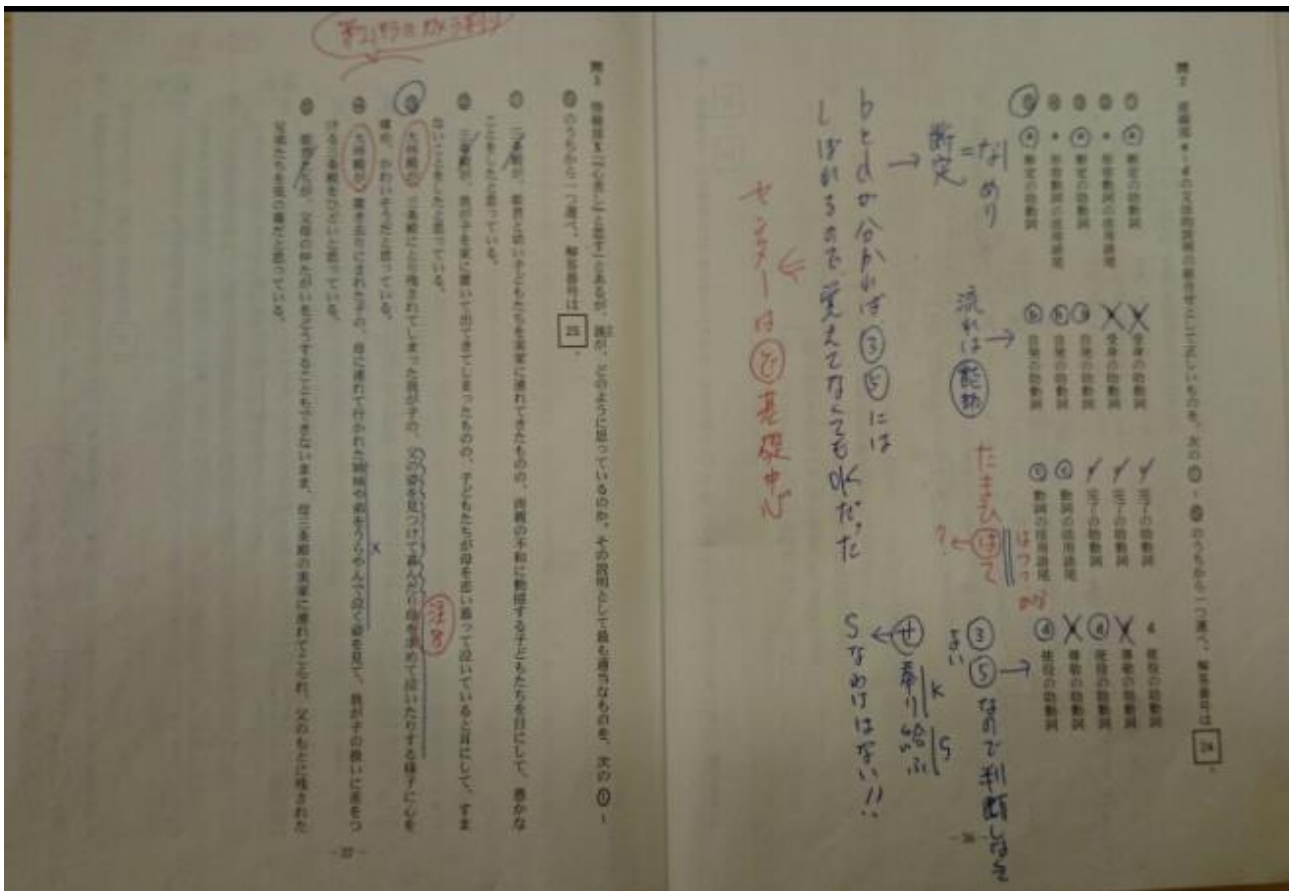 問2 傍線部a～dの文法的説明の組合せとして正しいものを、次の①～⑤のうちから一つ選べ。解答番号は24。
① a 断定の助動詞 b 受身の助動詞 c 完了の助動詞 d 使役の助動詞
② a 形容動詞の活用語尾 b 受身の助動詞 c 完了の助動詞 d 尊敬の助動詞
③ a 断定の助動詞 b 自発の助動詞 c 完了の助動詞 d 使役の助動詞
④ a 形容動詞の活用語尾 b 自発の助動詞 c 動詞の活用語尾 d 尊敬の助動詞
⑤ a 断定の助動詞 b 自発の助動詞 c 動詞の活用語尾 d 使役の助動詞
なめり
=
断定
流れは能動
たまひほて
?
③
⑤なので判断しなくて
よい
せ奉り給ふ
K
S
Sなわけはない!!
bとdが分かれば③⑤には
しばれるので覚えてなくても
センターは基礎中心
- 36 -
問3 傍線部X「「心苦し」と思す」とあるが、誰が、どのように思っているのか。その説明として最も適当なものを、次の①～
⑤のうちから一つ選べ。解答番号は25。
① 三条殿が、姫君と幼い子どもたちを実家に連れてきたものの、両親の不和に動揺する子どもたちを目にして、愚かな
ことをしたと思っている。
② 三条殿が、我が子を家に置いて出てきてしまったものの、子どもたちが母を恋い慕って泣いていると耳にして、すま
ないことをしたと思っている。
③ 大将殿が、三条殿にとり残されてしまった我が子の、父の姿を見つけて喜んだり母を求めて泣いたりする様子に心を
痛め、かわいそうだと思っている。
④ 大将殿が、置き去りにされた子の、母に連れて行かれた姉妹や弟をうらやんで泣く姿を見て、我が子の扱いに差をつ
ける三条殿をひどいと思っている。
⑤ 姫君たちが、父母の仲たがいをどうすることもできないまま、母三条殿の実家に連れてこられ、父のもとに残された
兄弟たちを気の毒だと思っている。
x
- 37 -